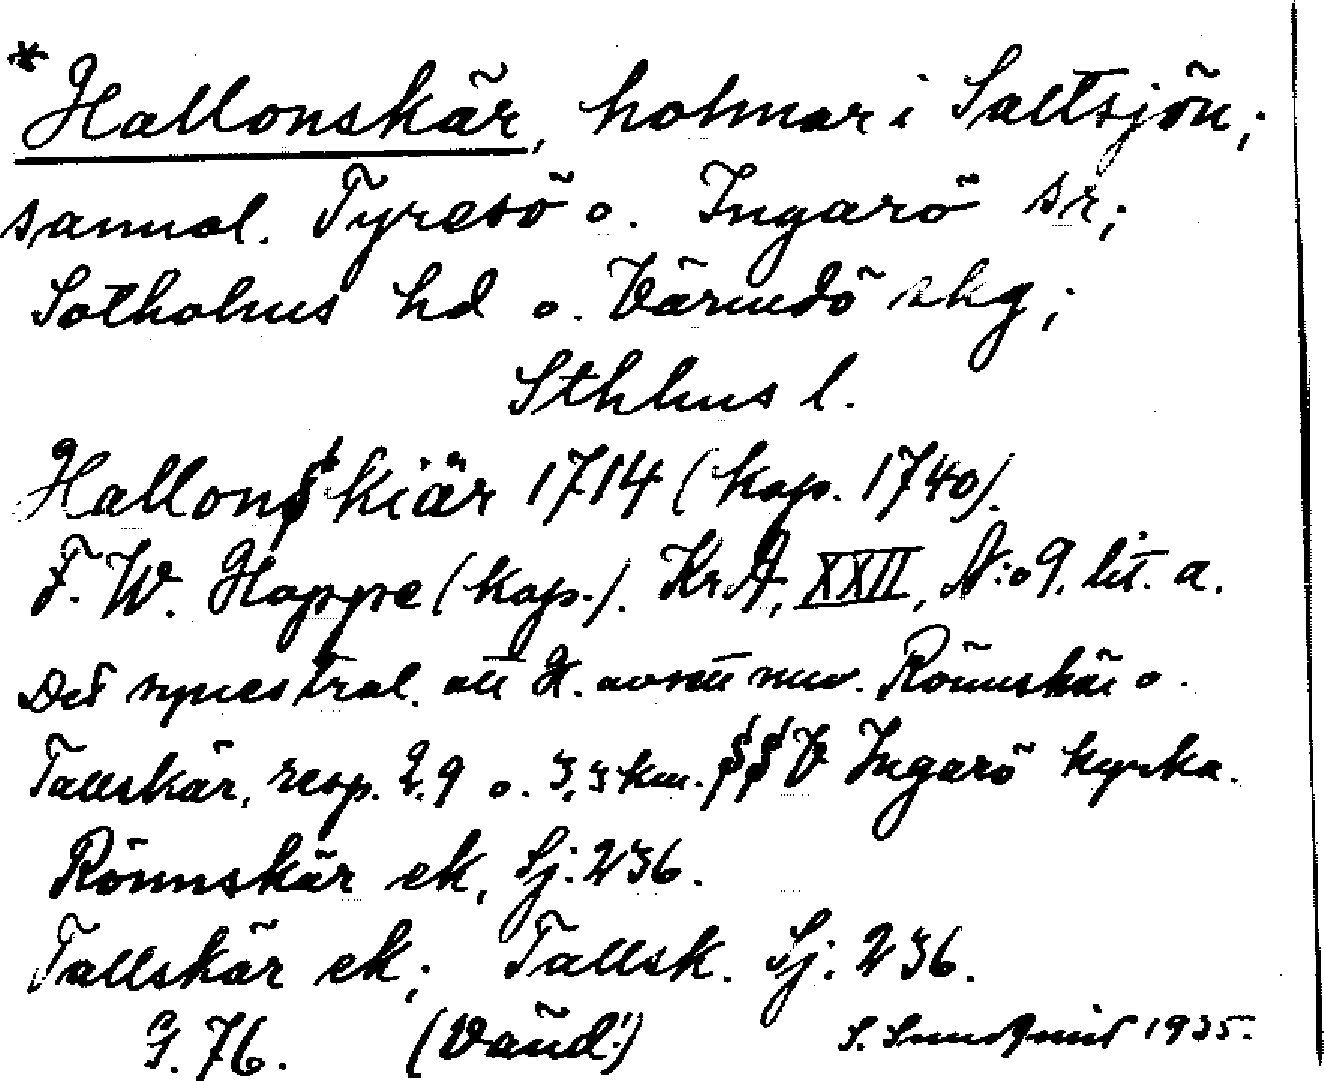 * Hallonskär, holmar i Saltsjön;
sannol. Tyresö o. Ingarö sr;
Sotholms hd o. Värmdö skg;
Sthlms l.
Hallonskiär 1714 (kop. 1740).
F. W. Hoppe (kop.). KrA, XXII, N:o 9. lit. a.
Det synes trol. att H. avsett nuv. Rönnskär o.
Tallskär, resp. 2,9 o. 3,3 km. SSV Ingarö kyrka.
Rönnskär ek, Sj: 236.
Tallskär ek; Tallsk. Sj: 236.
G. 76. (Vänd!) S. Sundqvist 1935.